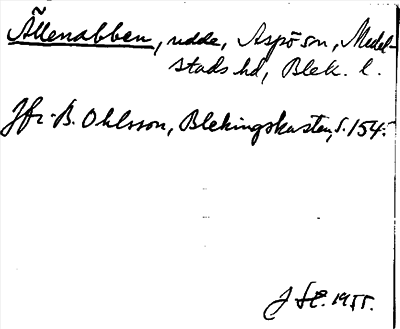 Ällenabben, udde, Aspö sn, Medel-
stads hd, Blek. l.
Jfr B. Ohlsson, Blekingskusten, s. 154.
1955.